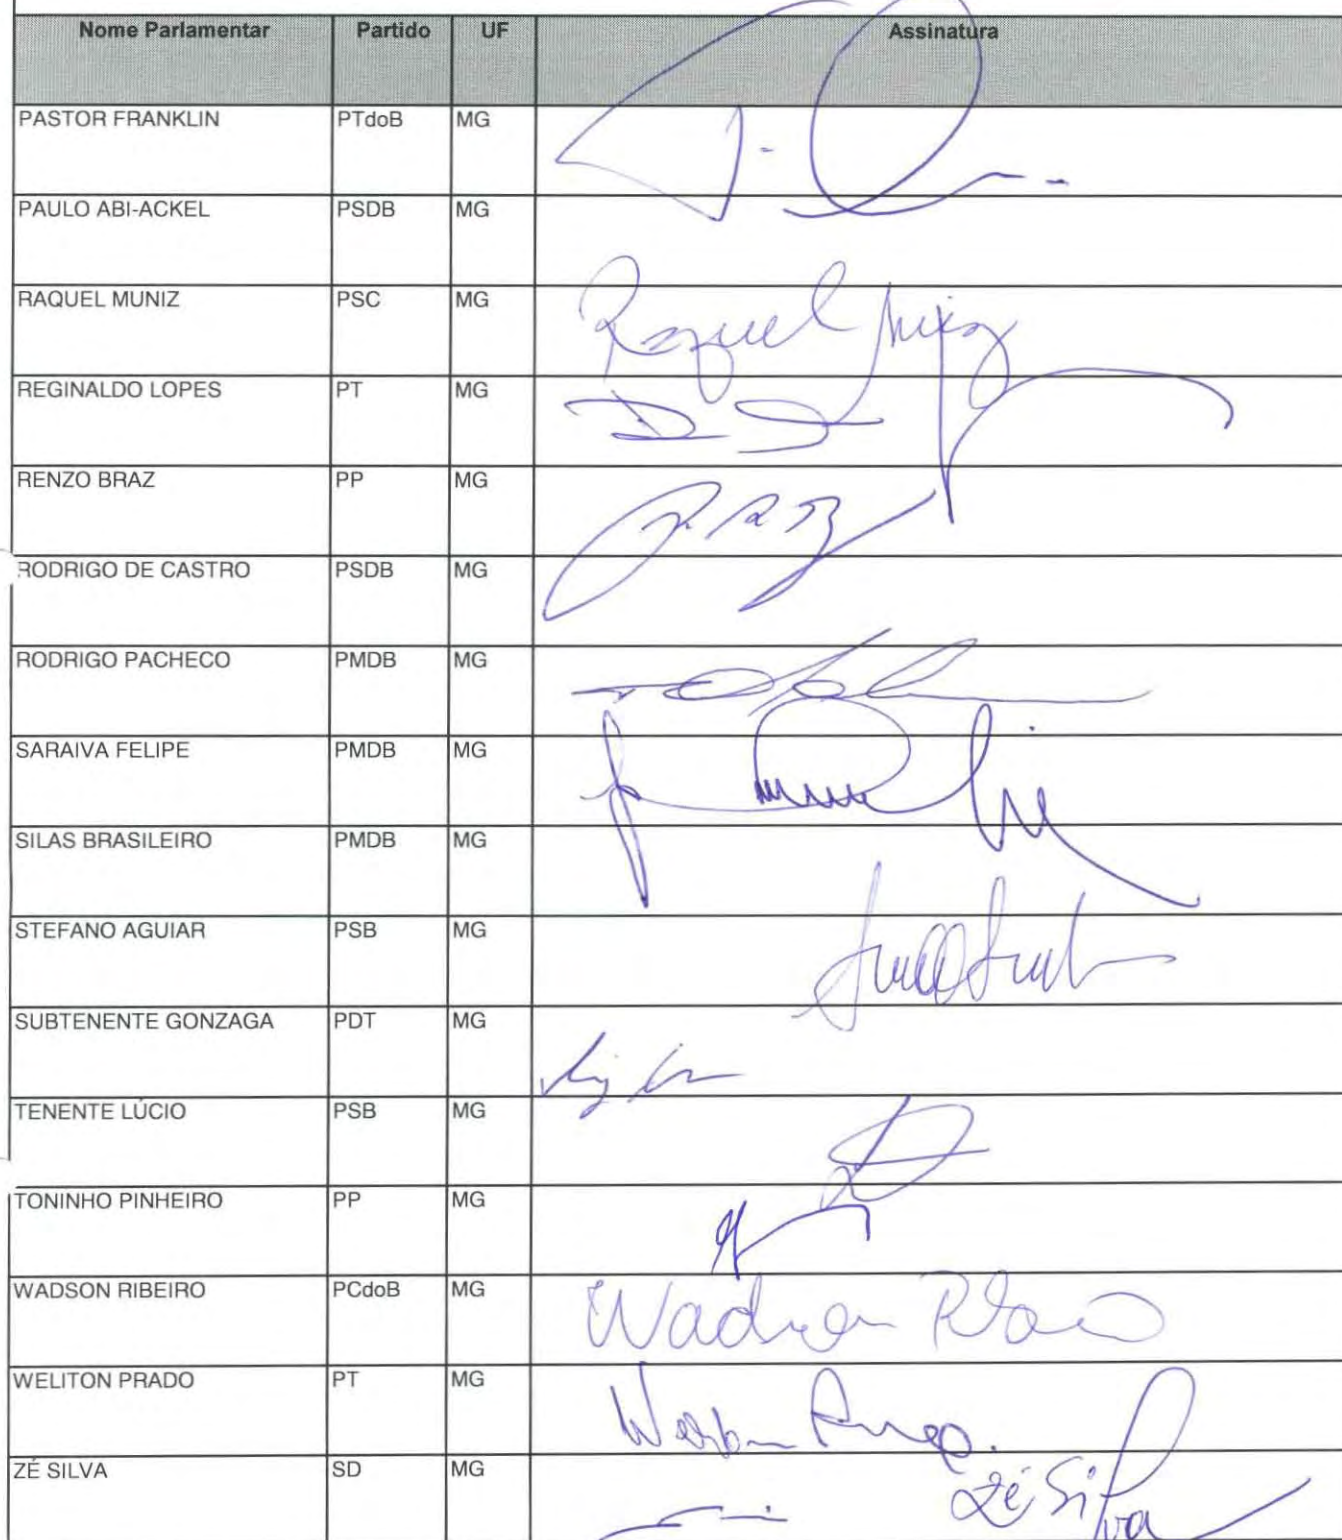 Nome Parlamentar Partido UF Assinatura
PASTOR FRANKLIN PTdoB MG
PAULO ABI-ACKEL PSDB MG
RAQUEL MUNIZ PSC MG Raquel Muniz
REGINALDO LOPES PT MG
RENZO BRAZ PP MG
RODRIGO DE CASTRO PSDB MG
RODRIGO PACHECO PMDB MG
SARAIVA FELIPE PMDB MG
SILAS BRASILEIRO PMDB MG
STEFANO AGUIAR PSB MG
SUBTENENTE GONZAGA PDT MG
TENENTE LÚCIO PSB MG
TONINHO PINHEIRO PP MG
WADSON RIBEIRO PCdoB MG Wadson
WELITON PRADO PT MG
ZÉ SILVA SD MG Zé Silva